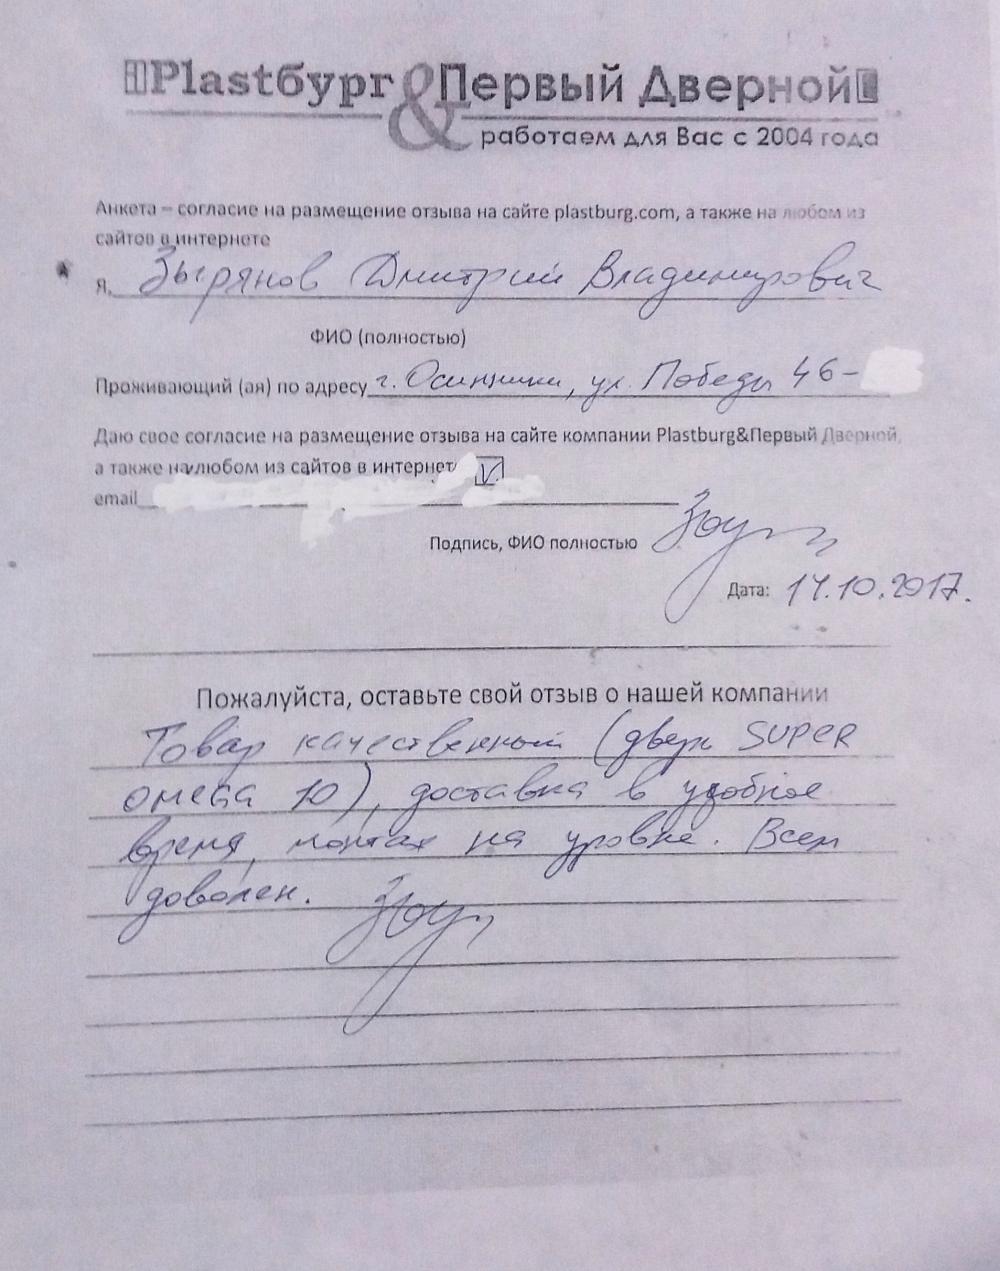 Plastбург & Первый Дверной
работаем для Вас с 2004 года
Анкета – согласие на размещение отзыва на сайте plastburg.com, а также на любом из
сайтов в интернете
Я, Зырянов Дмитрий Владимирович
ФИО (полностью)
Проживающий (ая) по адресу г. Осинники, ул. Победы 46-
Даю свое согласие на размещение отзыва на сайте компании Plastburg&Первый Дверной,
а также на любом из сайтов в интернет V
email
Подпись, ФИО полностью
Дата: 14.10.2017.
Пожалуйста, оставьте свой отзыв о нашей компании
Товар качественный (дверь SUPER
омега 10), доставка в удобное
время, монтаж на уровне. Всем
доволен.